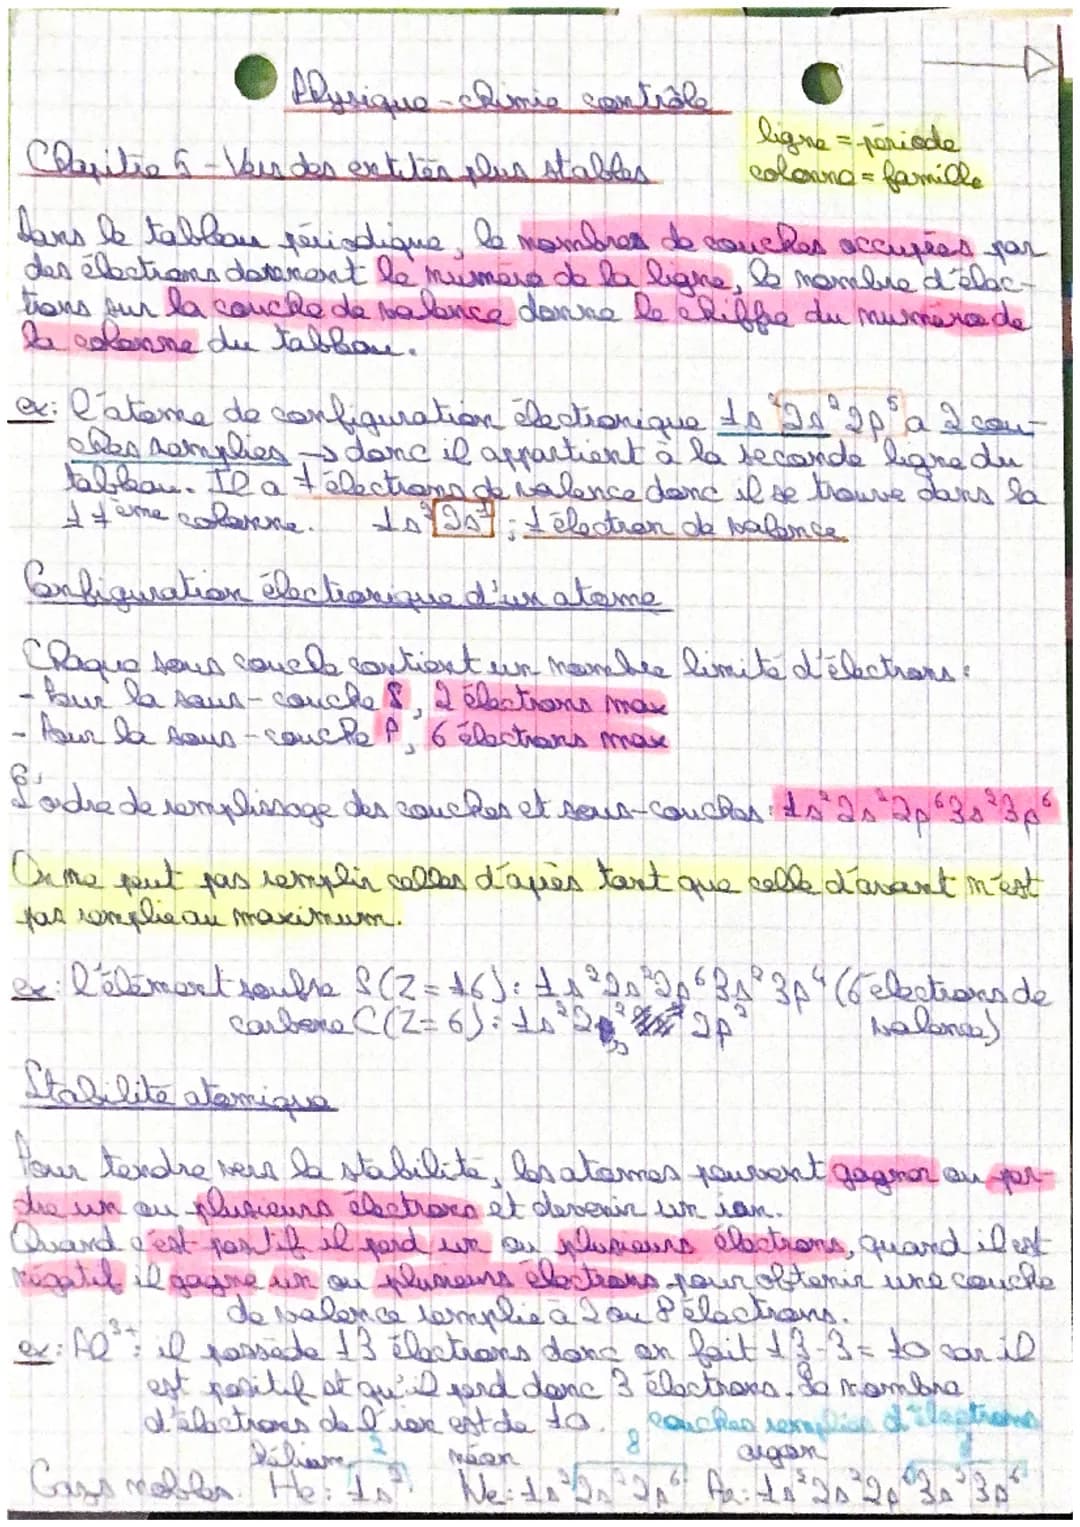 Physique-chimie contrôle
ligne = période
colonne = famille
Chapitre 5 - Vers des entités plus stables
Dans le tableau périodique, le nombres de couches occupées par
des électrons donnent le numéro de la ligne, le nombre d'élec-
trons sur la couche de valence donne le chiffre du numéro de
la colonne du tableau.
ex: l'atome de configuration électronique 1s² 2s² 2p⁵ a 2 cou-
ches remplies → donc il appartient à la seconde ligne du
tableau. Il a 7 électrons de valence donc il se trouve dans la
17ème colonne. 1s² 2s¹ ; 1 électron de valence
Configuration électronique d'un atome
Chaque sous couche contient un nombre limité d'électrons :
- Pour la sous-couche S, 2 électrons max
- Pour la sous-couche P, 6 électrons max
L'ordre de remplissage des couches et sous-couches : 1s² 2s² 2p⁶ 3s² 3p⁶
On ne peut pas remplir celles d'après tant que celle d'avant n'est
pas remplie au maximum.
ex: l'élément soufre S (Z=16) : 1s² 2s² 2p⁶ 3s² 3p⁴ (6 électrons de
valence)
carbone C (Z=6) : 1s² 2s² 2p²
Stabilité atomique
Pour tendre vers la stabilité, les atomes peuvent gagner ou per-
dre un ou plusieurs électrons et devenir un ion.
Quand c'est positif il perd un ou plusieurs électrons, quand il est
négatif il gagne un ou plusieurs électrons pour obtenir une couche
de valence remplie à 2 ou 8 électrons.
ex: Al³⁺ : il possède 13 électrons donc on fait 13-3 = 10 car il
est positif et qu'il perd donc 3 électrons. Le nombre
d'électrons de l'ion est de 10. couches remplies d'électrons
hélium 2 néon 8 argon 8
Gazs nobles. He : 1s² Ne : 1s² 2s² 2p⁶ Ar : 1s² 2s² 2p⁶ 3s² 3p⁶